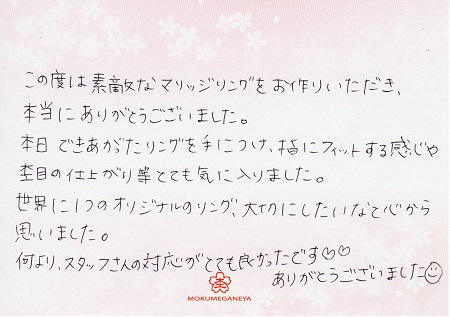 この度は素敵なマリッジリングをお作りいただき、
本当にありがとうございました。
本日できあがったリングを手につけ、指にフィットする感じや
杢目の仕上がり等とても気に入りました。
世界に1つのオリジナルのリング、大切にしたいなと心から
思いました。
何より、スタッフさんの対応がとても良かったです♡♡
ありがとうございました☺
杢
MOKUMEGANEYA